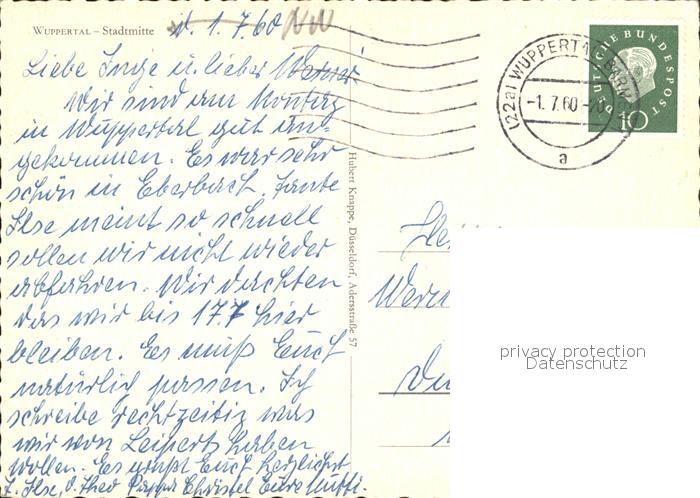 WUPPERTAL – Stadtmitte
d. 1.7.60
Liebe Inge u. lieber Werner.
Wir sind am Montag
in Wuppertal gut an-
gekommen. Es war sehr
schön in Eberbach. Tante
Ilse meint so schnell
sollen wir nicht wieder
abfahren. Wir dachten
das wir bis 17.7 hier
bleiben. Es muß Euch
natürlich passen. Ich
schreibe rechtzeitig was
wir von Leipertz haben
wollen. Es grüßt Euch herzlichst
T. Ilse, O. Theo Pappa Christel Eure Mutti.
Hubert Knappe, Düsseldorf, Adersstraße 57
DEUTSCHE BUNDESPOST
10
(22a) WUPPERTAL-BARMEN
-1.7.60-20
a
Wern
privacy protection
Datenschutz